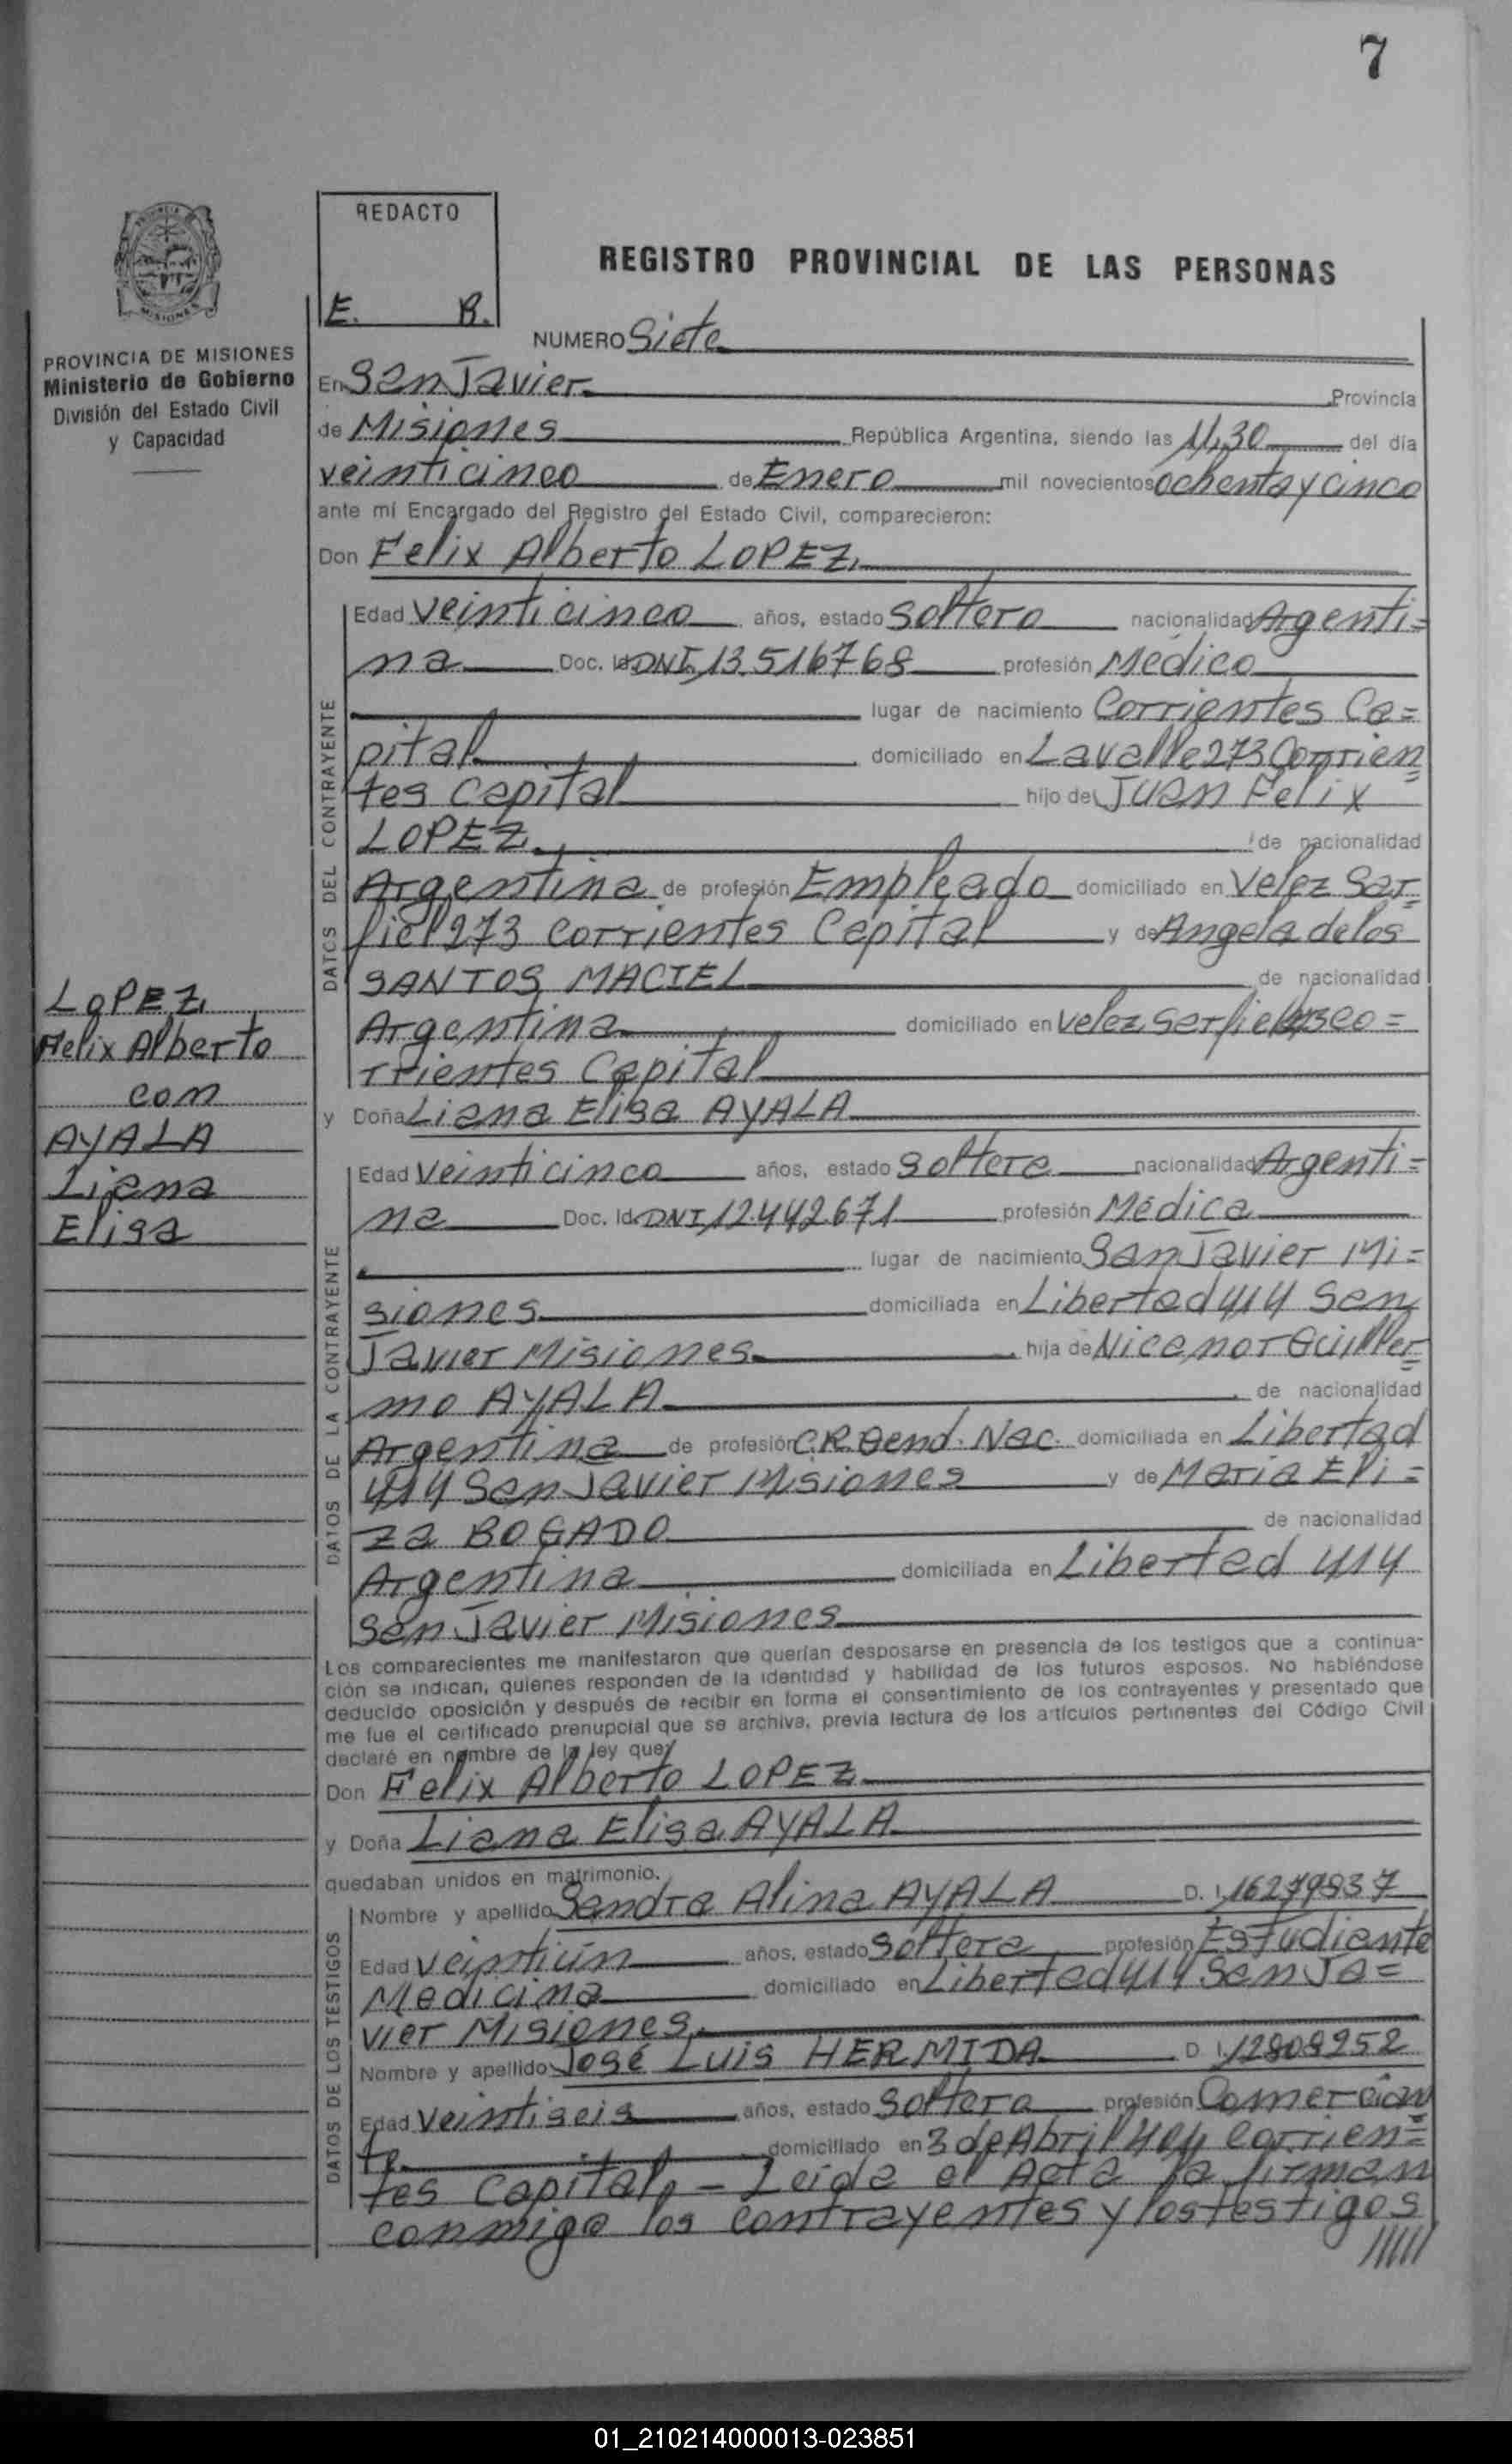 7
REDACTO
E. B.
REGISTRO PROVINCIAL DE LAS PERSONAS
PROVINCIA DE MISIONES
Ministerio de Gobierno
División del Estado Civil
y Capacidad
NUMERO Siete
En San Javier Provincia
de Misiones República Argentina, siendo las 11,30 del día
veinticinco de Enero mil novecientos ochenta y cinco
ante mí Encargado del Registro del Estado Civil, comparecieron:
Don Felix Alberto LOPEZ
DATOS DEL CONTRAYENTE
Edad veinticinco años, estado soltero nacionalidad Argenti=
na Doc. Id. DNI, 13.516768 profesión Médico
lugar de nacimiento Corrientes Ca=
pital domiciliado en Lavalle 273 Corrien=
tes Capital hijo de Juan Felix
LOPEZ de nacionalidad
Argentina de profesión Empleado domiciliado en Velez Sar=
fiel 273 Corrientes Capital y de Angela de los
SANTOS MACIEL de nacionalidad
Argentina domiciliado en Velez Sarfiel Co=
rrientes Capital
LOPEZ
Felix Alberto
con
AYALA
Liana
Elisa
y Doña Liana Elisa AYALA
DATOS DE LA CONTRAYENTE
Edad veinticinco años, estado soltera nacionalidad Argenti=
na Doc. Id. DNI, 12.442.671 profesión Médica
lugar de nacimiento San Javier Mi=
siones domiciliada en Libertad 414 San
Javier Misiones hija de Nicanor Guiller=
mo AYALA de nacionalidad
Argentina de profesión C.R. Gend. Nac. domiciliada en Libertad
414 San Javier Misiones y de Maria Eli=
za BOGADO de nacionalidad
Argentina domiciliada en Libertad 414
San Javier Misiones
Los comparecientes me manifestaron que querían desposarse en presencia de los testigos que a continua-
ción se indican, quienes responden de la identidad y habilidad de los futuros esposos. No habiéndose
deducido oposición y después de recibir en forma el consentimiento de los contrayentes y presentado que
me fue el certificado prenupcial que se archiva, previa lectura de los artículos pertinentes del Código Civil
declaré en nombre de la ley que
Don Felix Alberto LOPEZ
y Doña Liana Elisa AYALA
quedaban unidos en matrimonio.
DATOS DE LOS TESTIGOS
Nombre y apellido Sandra Alina AYALA D. I.
Edad veintiún años, estado soltera profesión Estudiante
Medicina domiciliado en Libertad 414 San Ja=
vier Misiones
Nombre y apellido José Luis HERMIDA D. I.
Edad veintiseis años, estado soltero profesión Comercian
te domiciliado en 3 de Abril 404 Corrien=
tes Capital, - Leida el Acta la firman
conmigo los contrayentes y los testigos
//////
01_210214000013-023851